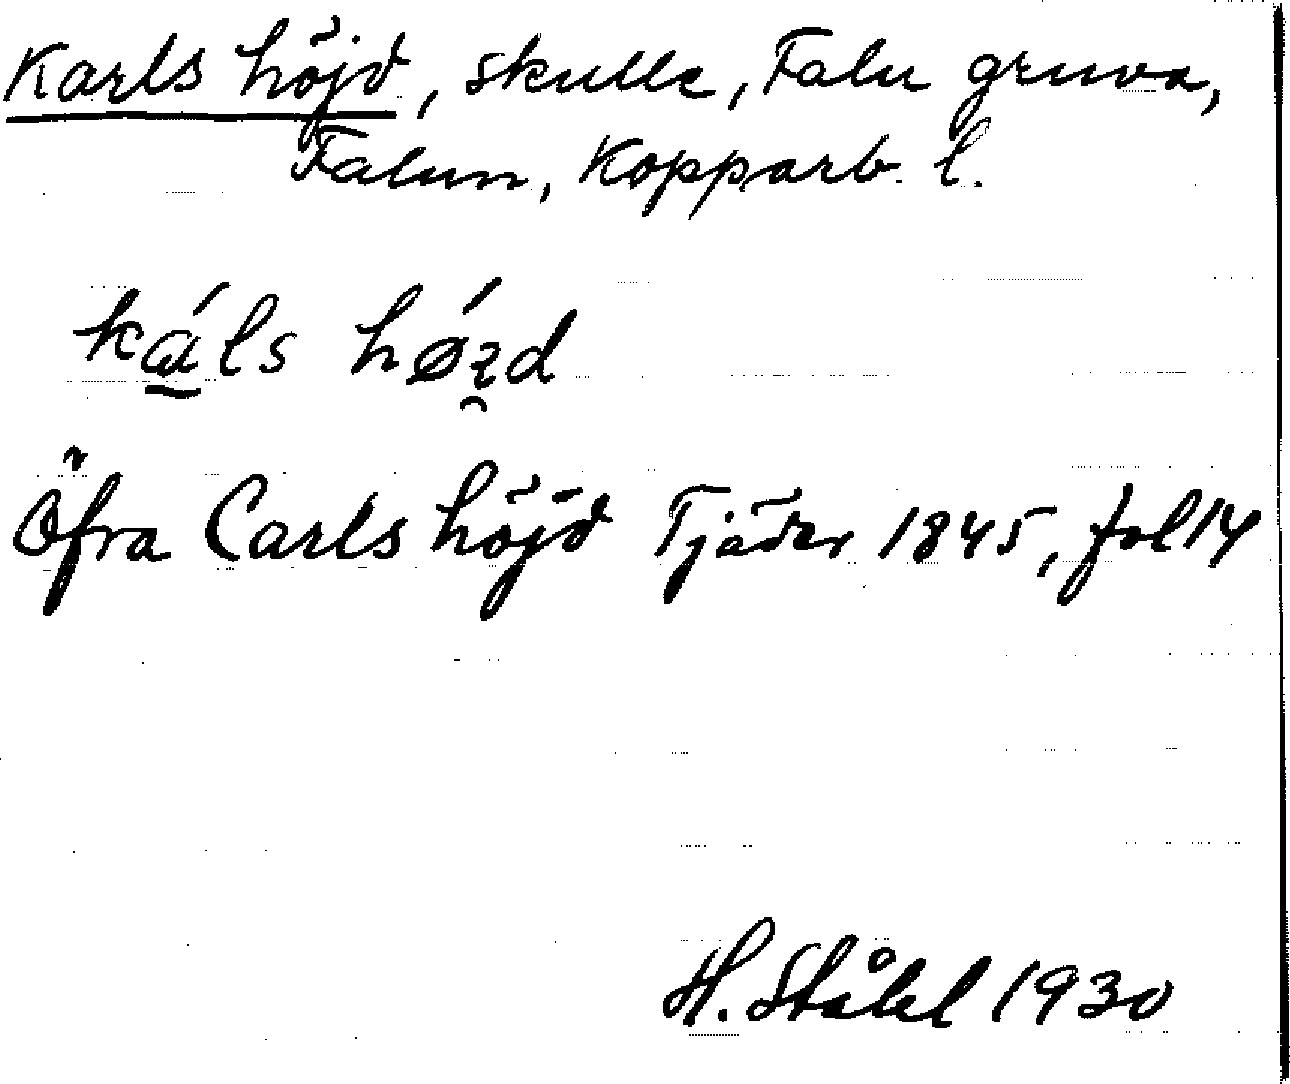 Karls höjd, skulle, Falu gruva,
Falun, Kopparb. l.
ká̱ls hǿɀ̯d
Öfra Carls höjd Tjäder 1845, fol 14
H. Ståhl 1930